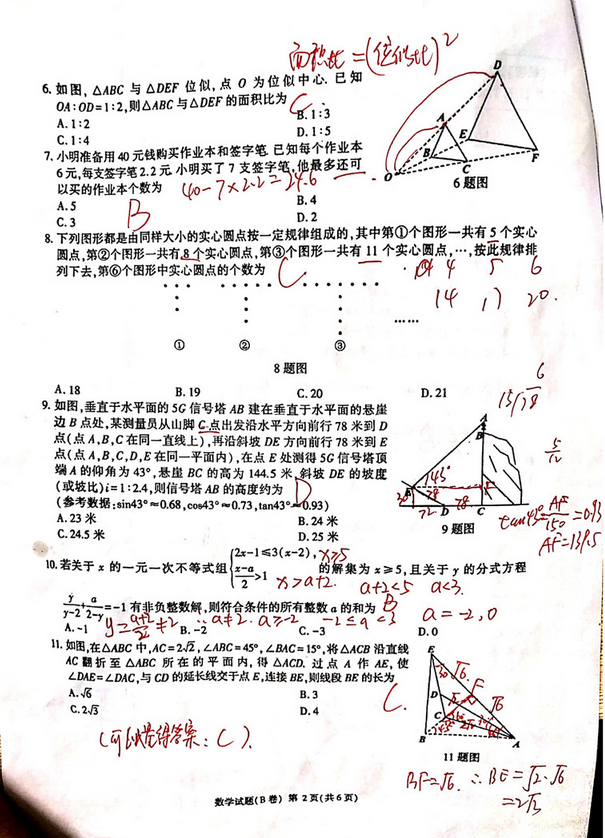 面积比=(位似比)²
6. 如图, △ABC 与 △DEF 位似, 点 O 为位似中心. 已知
OA:OD=1:2,则△ABC 与△DEF 的面积比为 C
A. 1:2
B. 1:3
C. 1:4
D. 1:5
D
A
E
B
C
F
O
6 题图
7. 小明准备用 40 元钱购买作业本和签字笔. 已知每个作业本
6元,每支签字笔2.2元,小明买了 7 支签字笔,他最多还可
以买的作业本个数为 40-7×2.2=24.6
A. 5
B. 4
C. 3
B
D. 2
8. 下列图形都是由同样大小的实心圆点按一定规律组成的,其中第①个图形一共有 5 个实心
圆点,第②个图形一共有 8 个实心圆点,第③个图形一共有 11 个实心圆点,…,按此规律排
列下去,第⑥个图形中实心圆点的个数为 C
4 5 6
14 17 20.
……
① ② ③
8 题图
A. 18
B. 19
C. 20
D. 21
9. 如图,垂直于水平面的 5G 信号塔 AB 建在垂直于水平面的悬崖
边 B 点处,某测量员从山脚 C 点出发沿水平方向前行 78 米到 D
点(点 A,B,C 在同一直线上),再沿斜坡 DE 方向前行 78 米到 E
点(点 A,B,C,D,E 在同一平面内),在点 E 处测得 5G 信号塔顶
端 A 的仰角为 43°,悬崖 BC 的高为 144.5 米,斜坡 DE 的坡度
(或坡比)i=1:2.4,则信号塔 AB 的高度约为 D
(参考数据:sin43°≈0.68,cos43°≈0.73,tan43°≈0.93)
A. 23 米
B. 24 米
C. 24.5 米
D. 25 米
A
B
43°
E
78
78
72
D
C
9 题图
5/12
tan43°=AF/150=0.93
AF=139.5
10. 若关于 x 的一元一次不等式组
2x-1≤3(x-2),
x≥5
(x-a)/2>1
x>a+2.
的解集为 x≥5,且关于 y 的分式方程
a+2<5 a<3.
y/(y-2)+a/(2-y)=-1 有非负整数解,则符合条件的所有整数 a 的和为 B
y=(a+2)/2≠2 ∴a≠2. a≥-2 -2≤a<3 a=-2,0
A. -1
B. -2
C. -3
D. 0
11. 如图,在△ABC 中,AC=2√2,∠ABC=45°,∠BAC=15°,将△ACB 沿直线
AC 翻折至△ABC 所在的平面内,得△ACD. 过点 A 作 AE,使
∠DAE=∠DAC,与 CD 的延长线交于点 E,连接 BE,则线段 BE 的长为
A. √6
B. 3
C. 2√3
D. 4
C.
E
√6
F
√6
D
C
B
A
11 题图
(可以量得答案:C).
BF=√6. ∴BE=√2·√6
=2√3
数学试题(B卷) 第 2 页(共 6 页)